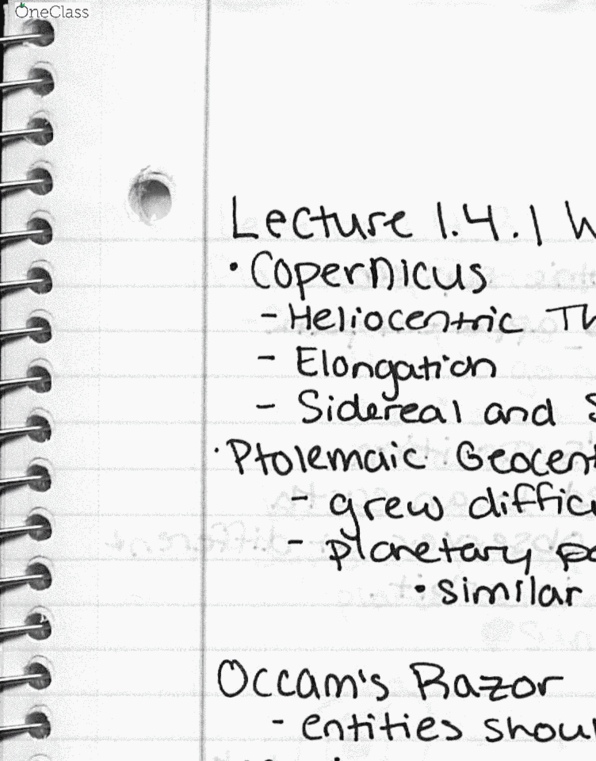 OneClass
Lecture 1.4.1
• Copernicus
- Heliocentric Th
- Elongation
- Sidereal and S
· Ptolemaic Geocent
- grew difficu
- planetary po
• similar
Occam's Razor
- entities shoul